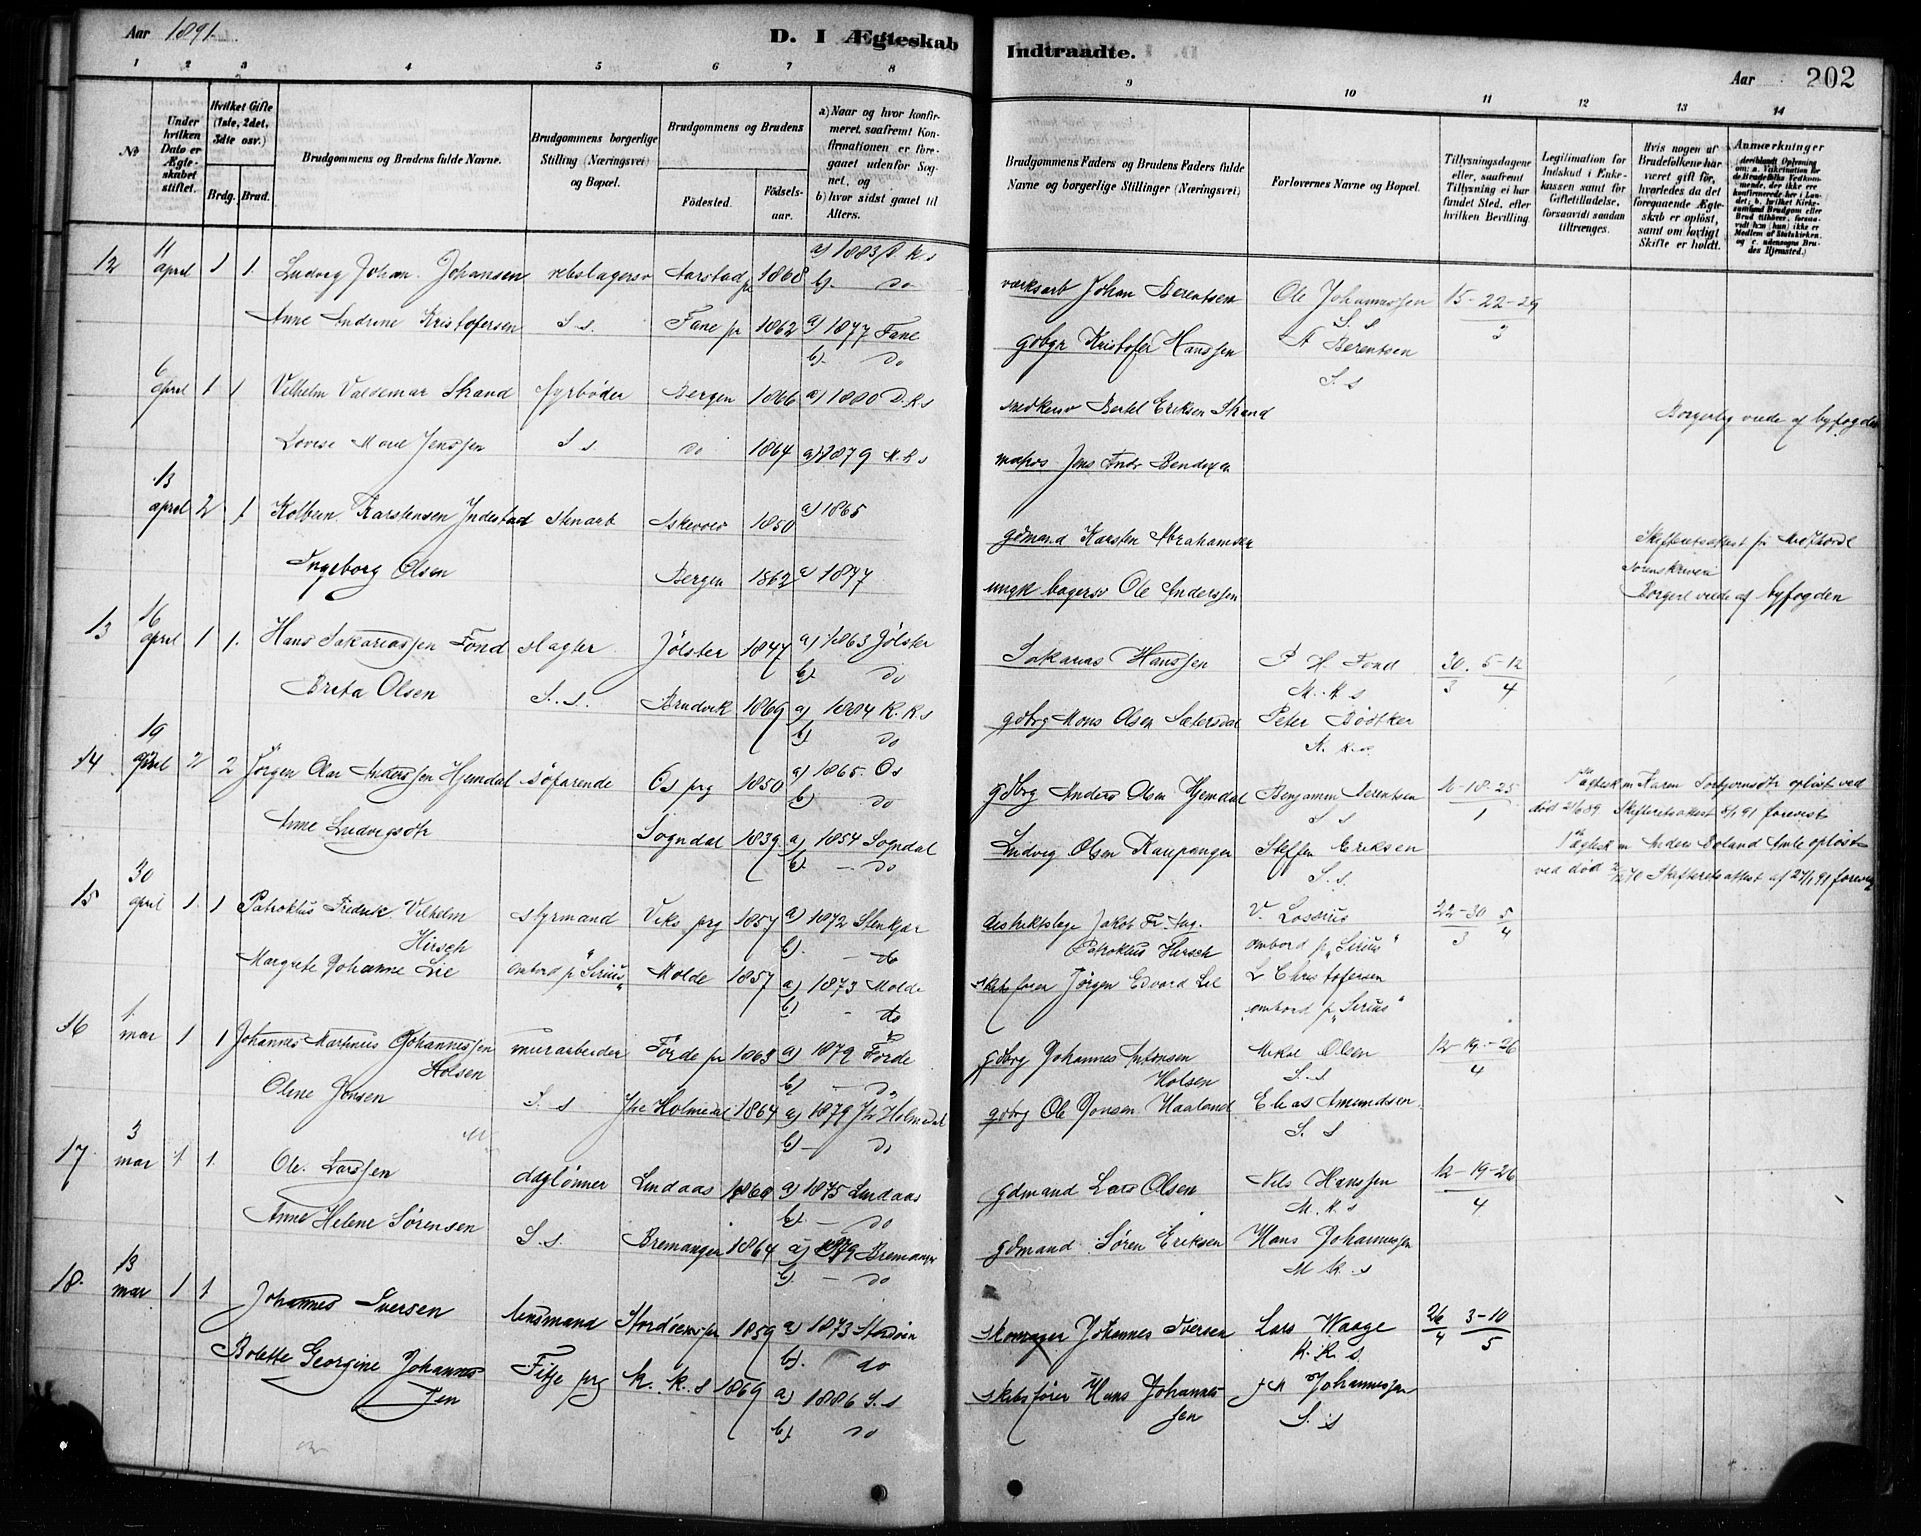 Aar 1891.
D. I Ægteskab Indtraadte.
Aar 202
1 2 3 4 5 6 7 8 9 10 11 12 13 14
No
Under hvilken Dato er Ægteskabet stiftet.
Hvilket Gifte (1ste, 2det, 3dte osv.)
Brdg. Brud.
Brudgommens og Brudens fulde Navne.
Brudgommens borgerlige Stilling (Næringsvei) og Bopæl.
Brudgommens og Brudens
Födested. Födsels-aar.
a) Naar og hvor konfirmeret, saafremt Konfirmationen er foregaaet udenfor Sognet, og
b) hvor sidst gaaet til Alters.
Brudgommens Faders og Brudens Faders fulde Navne og borgerlige Stillinger (Næringsvei)
Forlovernes Navne og Bopæl.
Tillysningsdagene eller, saafremt Tillysning ei har fundet Sted, efter hvilken Bevilling.
Legitimation for Indskud i Enkekassen samt for Giftetilladelse, forsaavidt saadan tiltrænges.
Hvis nogen af Brudefolkene har været gift før, hvorledes da det foregaaende Ægteskab er oplöst, samt om lovligt Skifte er holdt.
Anmærkninger
12 11 april 1 1. Ludvig Johan Johansen rebslagersv Aarstad pr 1868 a) 1883 D. k s værksarb Johan Berentsen Ole Johannessen 15-22-29
b). do S. s 3
Anne Andrine Kristofersen S. s. Fane pr 1862 a) 1877 Fane gdbgr Kristofer Hanssen A Berentsen
b). do S. s
6 april 1 1 Vilhelm Valdemar Strand fyrbøder Bergen 1866 a) 1880 D. k s snedkersv Bertel Eriksen Strand Borgerlig viede af byfogden
Lovise Marie Jenssen S s do 1864 a) 1879 N. k s matros Jens Andr Bendixen
13 april 2 1 Kolbein Karstensen Indestad stenarb Askevold 1850 a) 1865 gdmand Karsten Abrahamsen Skifteretsattest fr Nordhordl Sorenskriveri
Ingeborg Olsen Bergen 1862 a) 1877 ungk bagersv Ole Anderssen Borgerl viede af byfogden
13 16 april 1 1. Hans Sakariassen Fond slagter Jølster 1847 a) 1863 Jølster Sakarias Hanssen P H Fond 30. 5-12
b). do M. k s 3 4
Brita Olsen S. s. Brudvik 1869 a) 1884 K. k s gdbrg Mons Olsen Sætersdal Peter Bødtker
b) do N. k. s
14 19 april 2 2 Jörgen Olai Anderssen Hjemdal søfarende Os prg 1850 a) 1865. Os gdbrg Anders Olsen Hjemdal Benjamin Berentsen 11-18-25
b) do S s 1
Ægtesk m Karen Torbjørnsdtr opløst ved død 21/6 89 Skifteretsattest 8/1 91 forevist
Anne Ludvigsdtr Sogndal 1839 a) 1854 Sogndal Ludvig Olsen Kaupanger Steffen Eriksen
b). - do S. s.
1ste Ægtesk m Anders Boland Amle opløst ved død Skifteretsattest af 27/1 91 forevist
15 30 april 1. 1 Patroklus Fredrik Vilhelm Hirsch styrmand Viks prg 1857 a) 1872 Stenkjær distriktslæge Jakob Fr. Aug. Patroklus Hirsch V. Lossius ombord p "Sirius" 22-30 5
b). - do 3 4
Margrete Johanne Lie ombord p "Sirius" Molde 1857 a) 1873 Molde skibsfører Jörgen Edvard Lie L Christofersen ombord p "Sirius"
b) - do
16 1 mai 1 1 Johannes Martinus Johannessen Holsen murarbeider Førde pr 1863 a) 1879 Førde gdbrg Johannes Antonsen Holsen Mikal Olsen 12-19-26
b) - do S. s 4
Oline Jonsen S. s Ytre Holmedal 1864 a) 1879 Ytr Holmedal gdbrg Ole Jonsen Haaland Elias Amundsen
b) - do S. s
17 3 mai 1 1. Ole Larssen daglønner Lindaas 1860 a) 1875 Lindaas gdmand Lars Olsen Nils Hanssen 12-19-26
b). - do M. k s 4
Anne Helene Sørensen S. s. Bremanger 1864 a) 1879 Bremanger gdmand Søren Eriksen Hans Johannessen
b). - do M k. s
18. 13 mai 1 1 Johannes Iversen lensmand Stordøens pr 1859 a) 1873 Stordøen skomager Johannes Iversen Lars Waage 26 3-10
b). do K. k s. 4 5
Bolette Georgine Johannessen Fitje prg K. k. s 1869 a) 1886 S. s skibsfører Hans Johannessen Johannessen
b). do S. s